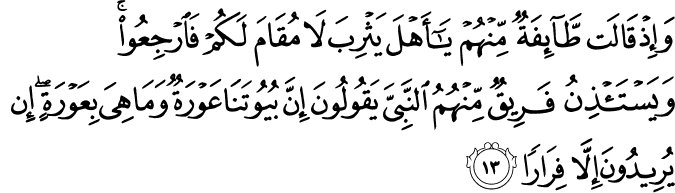 وَإِذۡ قَالَت طَّآئِفَةٞ مِّنۡهُمۡ يَٰٓأَهۡلَ يَثۡرِبَ لَا مُقَامَ لَكُمۡ فَٱرۡجِعُواْۚ
وَيَسۡتَـٔۡذِنُ فَرِيقٞ مِّنۡهُمُ ٱلنَّبِيَّ يَقُولُونَ إِنَّ بُيُوتَنَا عَوۡرَةٞ وَمَا هِيَ بِعَوۡرَةٍۖ إِن
يُرِيدُونَ إِلَّا فِرَارٗا ١٣